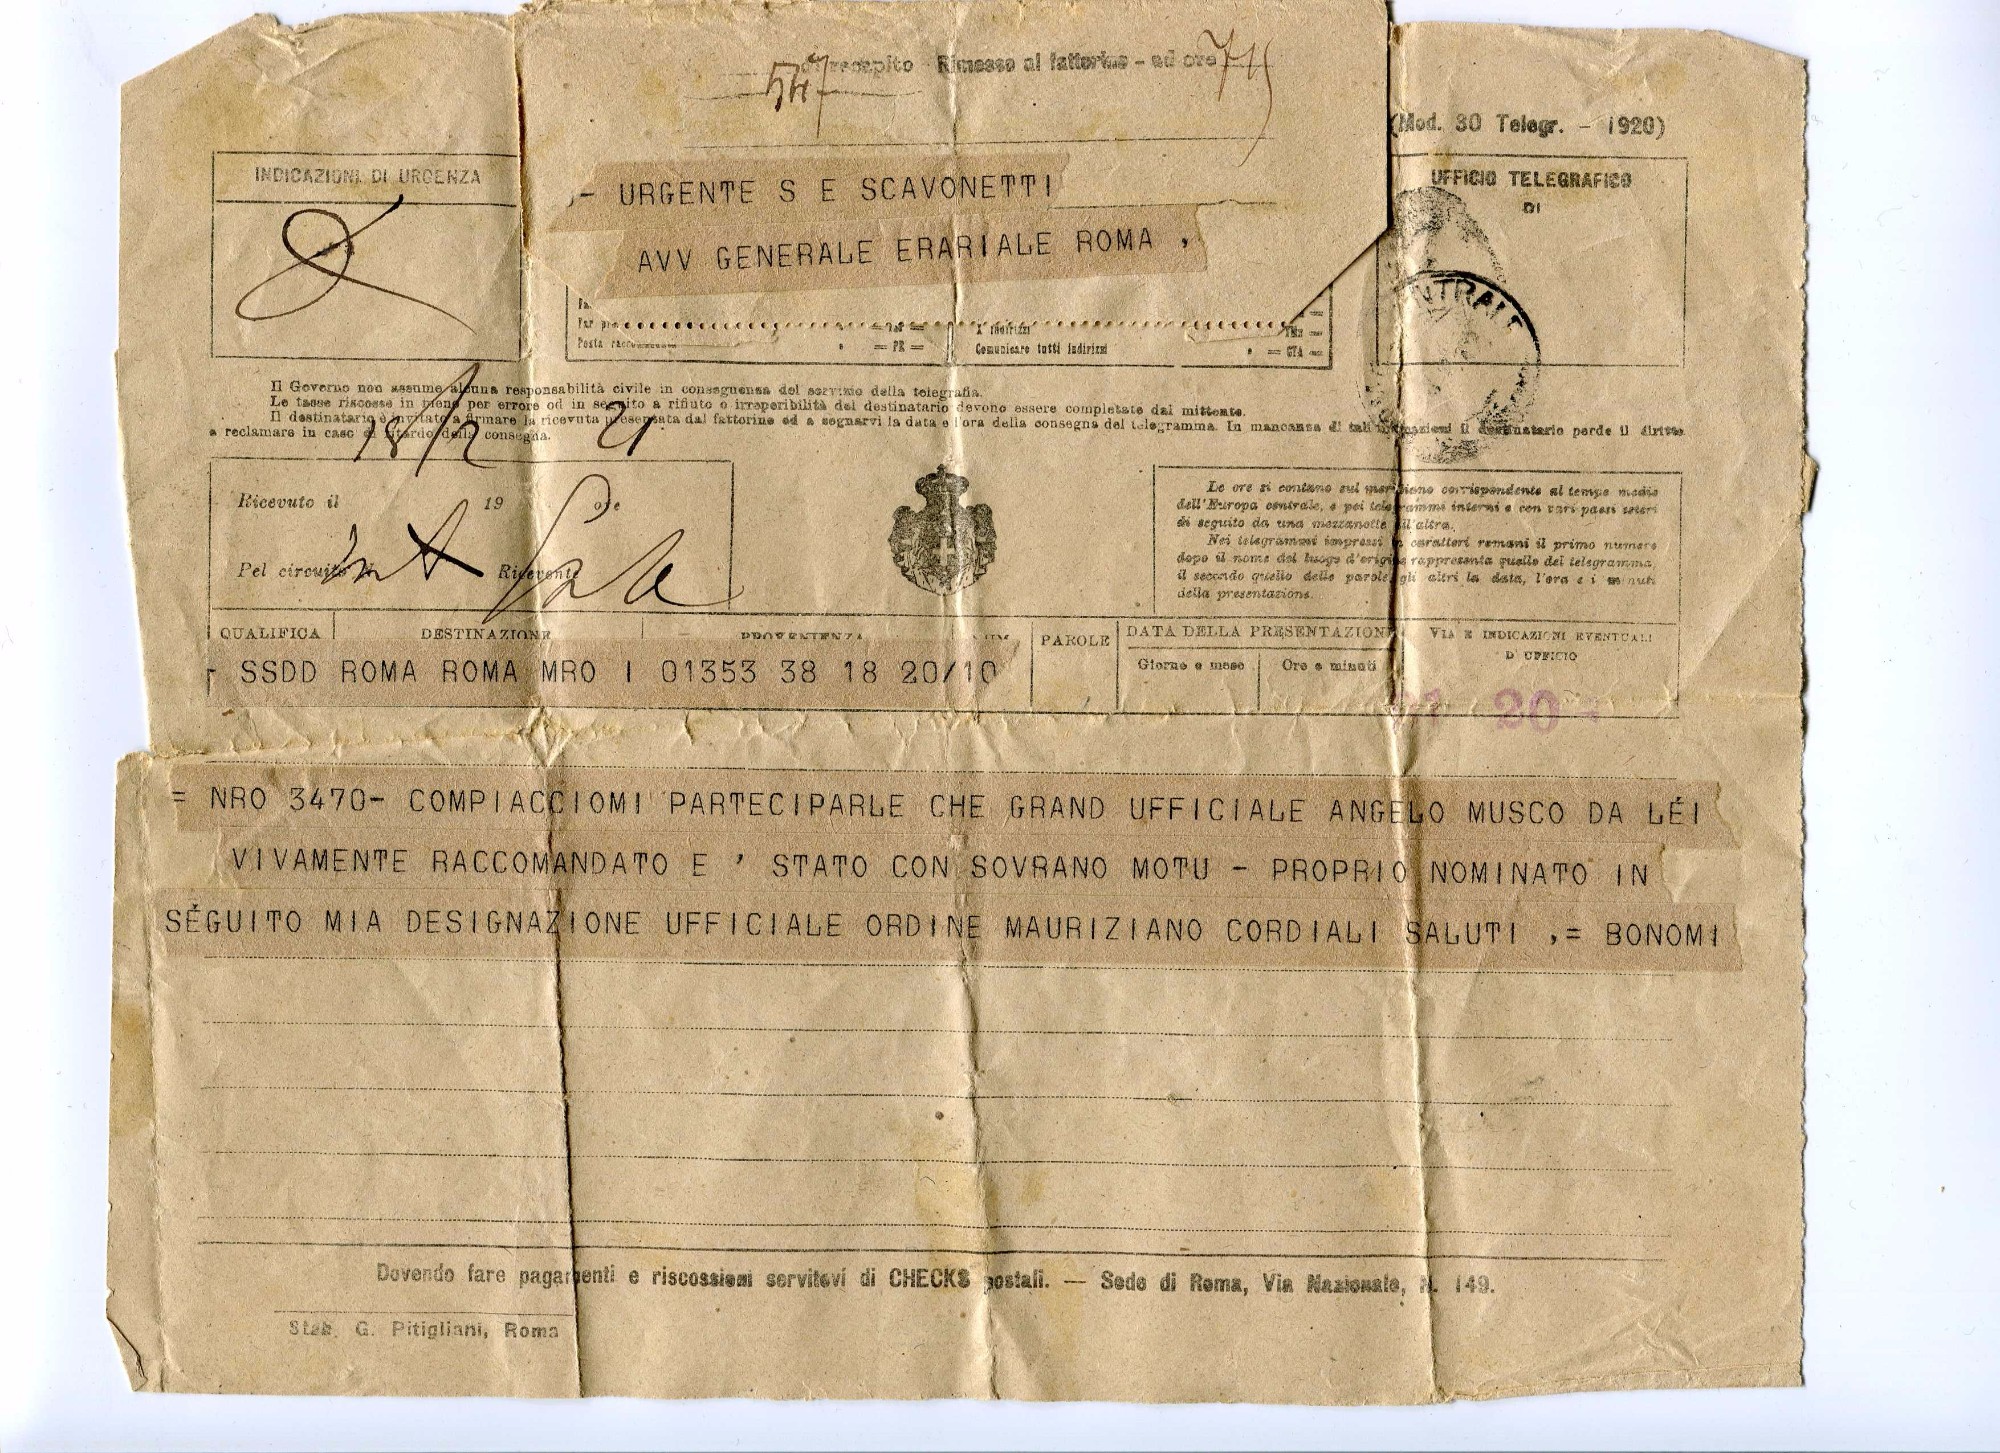 recapito Rimesso al fattorino - ad ore 715
547
(Mod. 30 Telegr. - 1920)
INDICAZIONI DI URGENZA
- URGENTE S E SCAVONETTI
AVV GENERALE ERARIALE ROMA ,
UFFICIO TELEGRAFICO
DI
= PR =
Comunicare tutti indirizzi
Il Governo non assume alcuna responsabilità civile in conseguenza del servizio della telegrafia.
Le tasse riscosse in meno per errore od in seguito a rifiuto o irreperibilità del destinatario devono essere completate dal mittente.
Il destinatario è invitato a firmare la ricevuta presentata dal fattorino ed a segnarvi la data e l'ora della consegna del telegramma. In mancanza di tali indicazioni il destinatario perde il diritto
a reclamare in caso di ritardo della consegna.
18/12 21
Ricevuto il 19 ore
Pel circuito Ricevente
Le ore si contano sul meridiano corrispondente al tempo medio
dell'Europa centrale, e pei telegrammi interni e con vari paesi esteri
di seguito da una mezzanotte all'altra.
Nei telegrammi impressi in caratteri romani il primo numero
dopo il nome del luogo d'origine rappresenta quello del telegramma,
il secondo quello delle parole, gli altri la data, l'ora e i minuti
della presentazione.
QUALIFICA DESTINAZIONE PROVENIENZA NUM. PAROLE DATA DELLA PRESENTAZIONE VIA E INDICAZIONI EVENTUALI
D'UFFICIO
Giorno e mese Ore e minuti
SSDD ROMA ROMA MRO I 01353 38 18 20/10
20
= NRO 3470- COMPIACCIOMI PARTECIPARLE CHE GRAND UFFICIALE ANGELO MUSCO DA LÉI
VIVAMENTE RACCOMANDATO E ' STATO CON SOVRANO MOTU - PROPRIO NOMINATO IN
SÉGUITO MIA DESIGNAZIONE UFFICIALE ORDINE MAURIZIANO CORDIALI SALUTI ,= BONOMI
Dovendo fare pagamenti e riscossioni servitevi di CHECKS postali. — Sede di Roma, Via Nazionale, N. 149.
Stab. G. Pitigliani, Roma